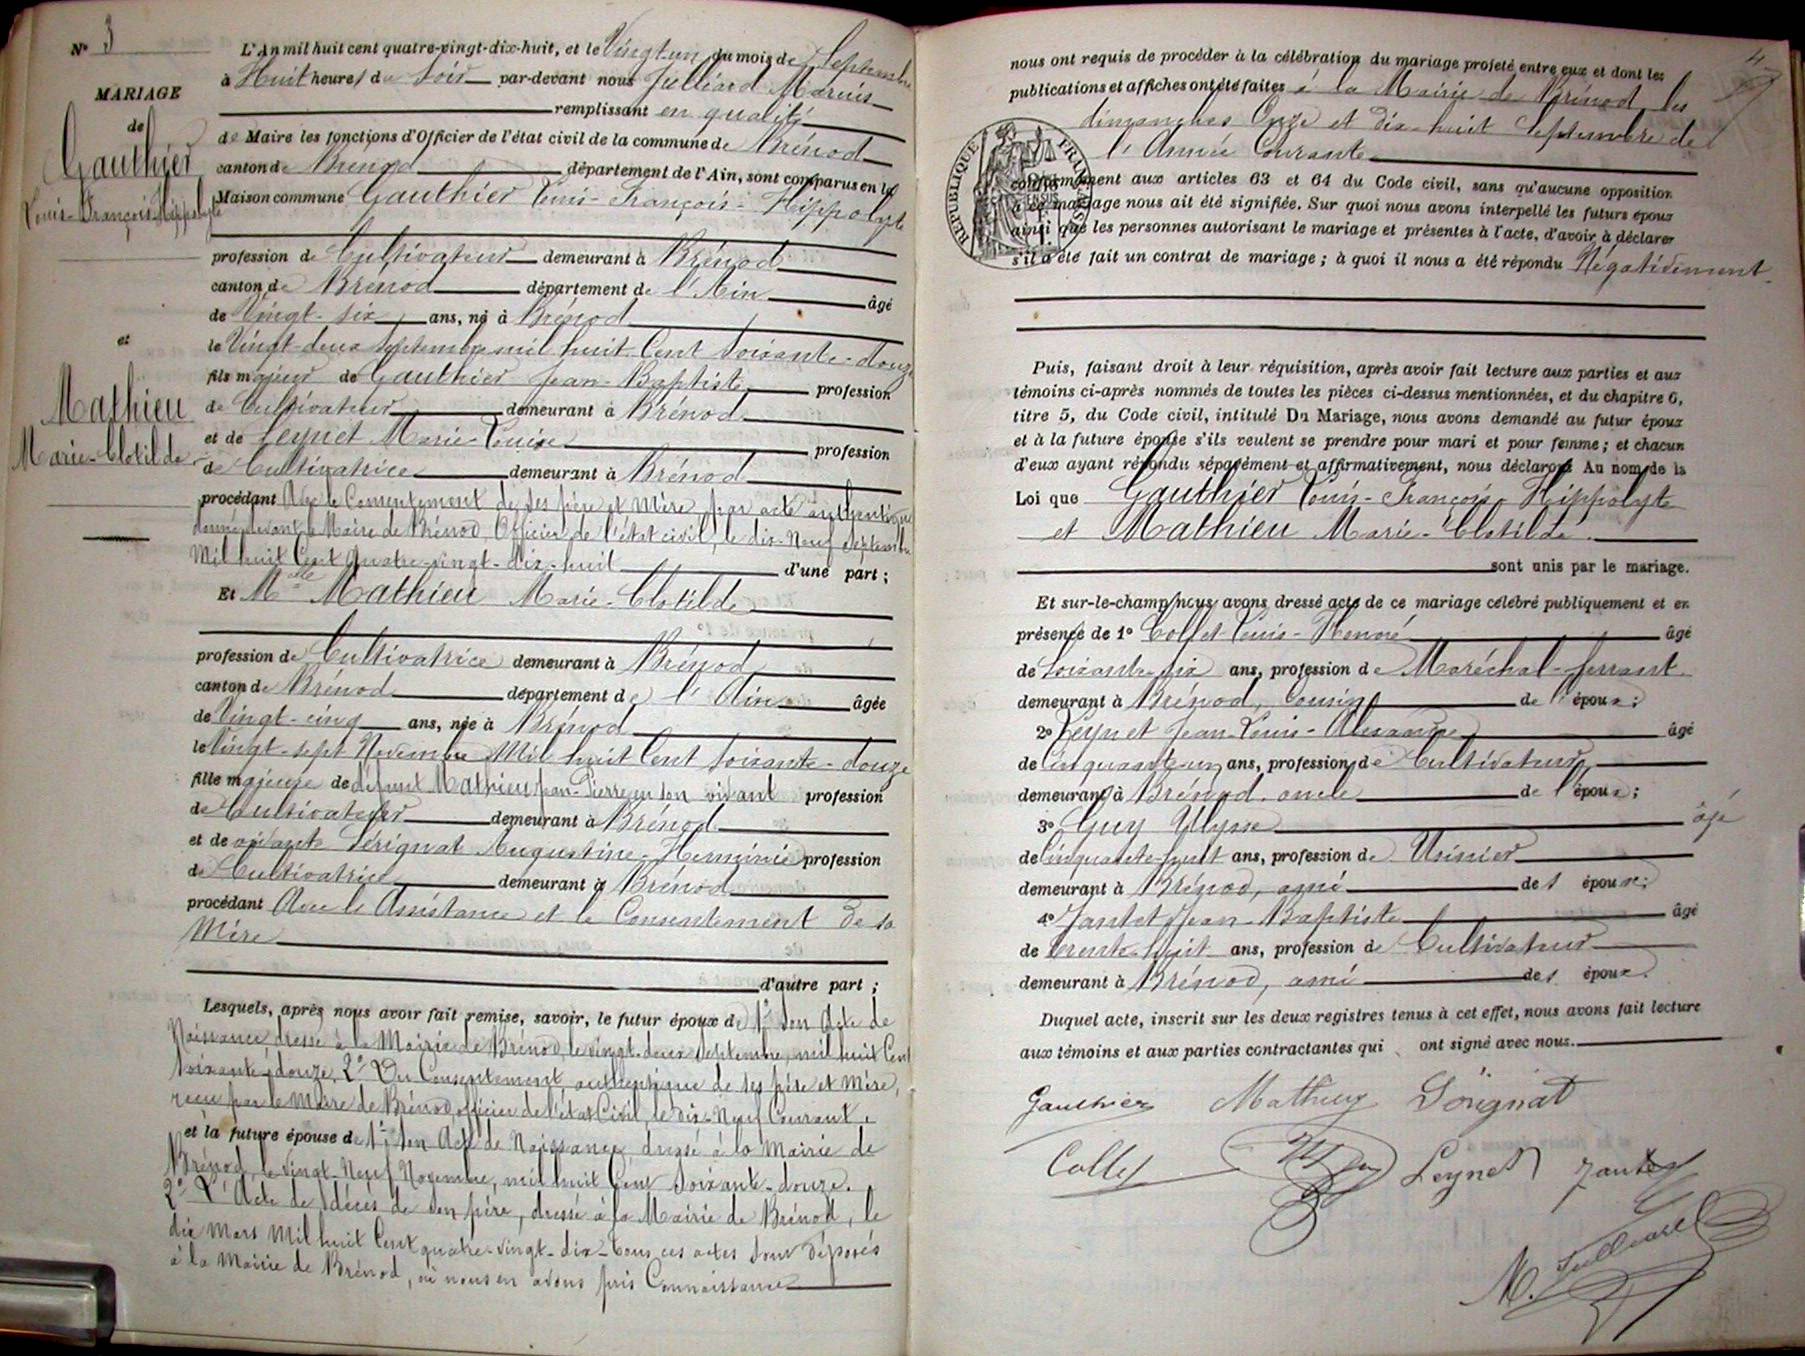 N° 3
MARIAGE
de
Gauthier
Louis-François-Hippolyte
et
Mathieu
Marie-Clotilde
L'An mil huit cent quatre-vingt-dix-huit, et le Vingt un du mois de Septembre
à Huit heures du Soir par-devant nous Julliard Marius
remplissant en qualité
de Maire les fonctions d'Officier de l'état civil de la commune de Brénod
canton de Brénod département de l'Ain, sont comparus en la
Maison commune Gauthier Louis-François-Hippolyte
profession de Cultivateur demeurant à Brénod
canton de Brénod département de l'Ain âgé
de Vingt-six ans, né à Brénod
le Vingt-deux Septembre mil huit Cent Soixante-douze
fils majeur de Gauthier Jean-Baptiste profession
de Cultivateur demeurant à Brénod
et de Leynet Marie-Louise profession
de Cultivatrice demeurant à Brénod
procédant Avec le Consentement de ses père et Mère, par acte authentique
donné devant le Maire de Brénod, Officier de l'état civil, le dix-Neuf Septembre
Mil huit Cent Quatre-vingt-dix-huit d'une part ;
Et Mlle Mathieu Marie-Clotilde
profession de Cultivatrice demeurant à Brénod
canton de Brénod département de l'Ain âgée
de Vingt-cinq ans, née à Brénod
le Vingt-sept Novembre Mil huit Cent Soixante-douze
fille majeure de défunt Mathieu Jean-Pierre en son vivant profession
de Cultivateur demeurant à Brénod
et de vivante Sérignat Augustine-Herminie profession
de Cultivatrice demeurant à Brénod
procédant Avec l'Assistance et le Consentement de sa
Mère
d'autre part ;
Lesquels, après nous avoir fait remise, savoir, le futur époux de 1° Son Acte de
Naissance, dressé à la Mairie de Brénod le vingt-deux Septembre, mil huit Cent
Soixante-douze, 2° Du Consentement authentique de ses père et Mère,
reçu par le Maire de Brénod, officier de l'état Civil, le Dix-Neuf Courant,
et la future épouse de 1° Son Acte de Naissance, dressé à la Mairie de
Brénod, le Vingt-Neuf Novembre, mil huit Cent Soixante-douze.
2° L'Acte de décès de son père, dressé à la Mairie de Brénod, le
dix Mars Mil huit Cent quatre-vingt-dix-Tous ces actes Sont Déposés
à la Mairie de Brénod, où nous en avons pris Connaissance
4
nous ont requis de procéder à la célébration du mariage projeté entre eux et dont les
publications et affiches ont été faites à la Mairie de Brénod, les
dimanches Onze et Dix-huit Septembre de
l'Année Courante
RÉPUBLIQUE FRANÇAISE
conformément aux articles 63 et 64 du Code civil, sans qu'aucune opposition
à ce mariage nous ait été signifiée. Sur quoi nous avons interpellé les futurs époux
ainsi que les personnes autorisant le mariage et présentes à l'acte, d'avoir à déclarer
s'il a été fait un contrat de mariage ; à quoi il nous a été répondu Négativement
Puis, faisant droit à leur réquisition, après avoir fait lecture aux parties et aux
témoins ci-après nommés de toutes les pièces ci-dessus mentionnées, et du chapitre 6,
titre 5, du Code civil, intitulé Du Mariage, nous avons demandé au futur époux
et à la future épouse s'ils veulent se prendre pour mari et pour femme ; et chacun
d'eux ayant répondu séparément et affirmativement, nous déclarons Au nom de la
Loi que Gauthier Louis-François-Hippolyte
et Mathieu Marie-Clotilde
sont unis par le mariage.
Et sur-le-champ nous avons dressé acte de ce mariage célébré publiquement et en
présence de 1° Collet Louis-Honoré âgé
de Soixante-six ans, profession de Maréchal-ferrant
demeurant à Brénod, Cousin de l'époux ;
2° Leynet Jean-Louis-Alexandre âgé
de Cinquante-un ans, profession de Cultivateur
demeurant à Brénod, oncle de l'époux ;
3° Guy Ulysse âgé
de Cinquante-huit ans, profession de Usinier
demeurant à Brénod, ami des époux ;
4° Jantet Jean-Baptiste âgé
de trente-huit ans, profession de Cultivateur
demeurant à Brénod, ami des époux.
Duquel acte, inscrit sur les deux registres tenus à cet effet, nous avons fait lecture
aux témoins et aux parties contractantes qui ont signé avec nous.
Gauthier Mathieu Sérignat
Collet Leynet Jantet
M. Julliard